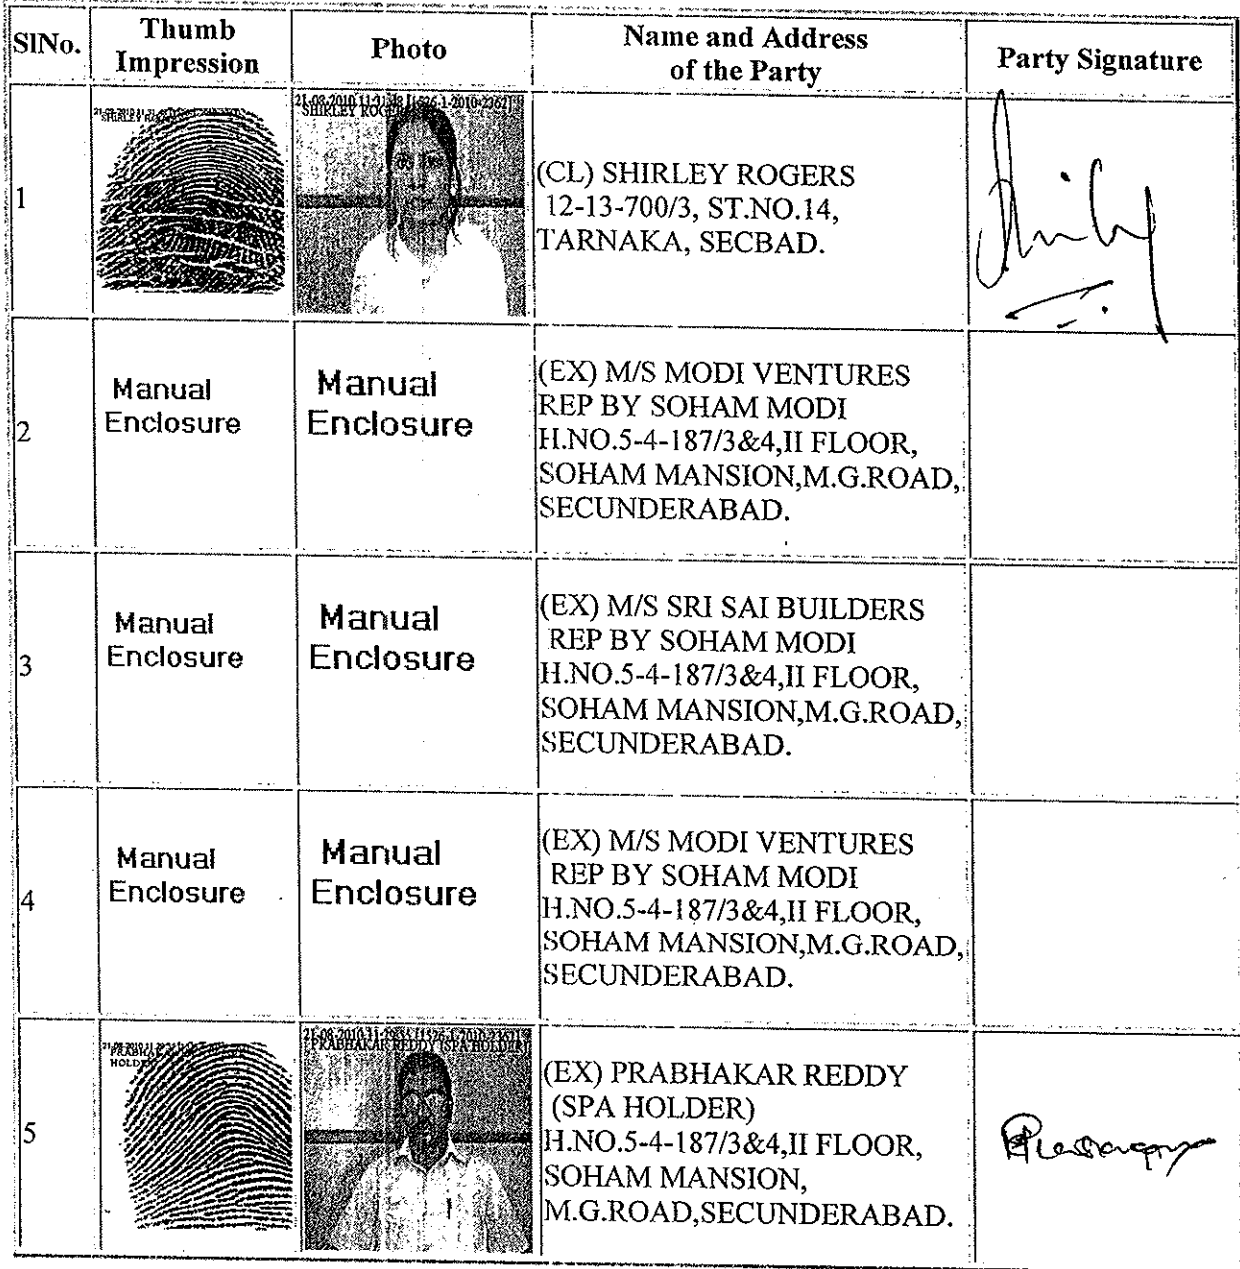 SlNo.
Thumb
Impression
Photo
Name and Address
of the Party
Party Signature
1
SHIRLEY ROGERS
(CL) SHIRLEY ROGERS
12-13-700/3, ST.NO.14,
TARNAKA, SECBAD.
2
Manual
Enclosure
Manual
Enclosure
(EX) M/S MODI VENTURES
REP BY SOHAM MODI
H.NO.5-4-187/3&4,II FLOOR,
SOHAM MANSION,M.G.ROAD,
SECUNDERABAD.
3
Manual
Enclosure
Manual
Enclosure
(EX) M/S SRI SAI BUILDERS
REP BY SOHAM MODI
H.NO.5-4-187/3&4,II FLOOR,
SOHAM MANSION,M.G.ROAD,
SECUNDERABAD.
4
Manual
Enclosure
Manual
Enclosure
(EX) M/S MODI VENTURES
REP BY SOHAM MODI
H.NO.5-4-187/3&4,II FLOOR,
SOHAM MANSION,M.G.ROAD,
SECUNDERABAD.
5
HOLDER
PRABHAKAR REDDY (SPA HOLDER)
(EX) PRABHAKAR REDDY
(SPA HOLDER)
H.NO.5-4-187/3&4,II FLOOR,
SOHAM MANSION,
M.G.ROAD,SECUNDERABAD.